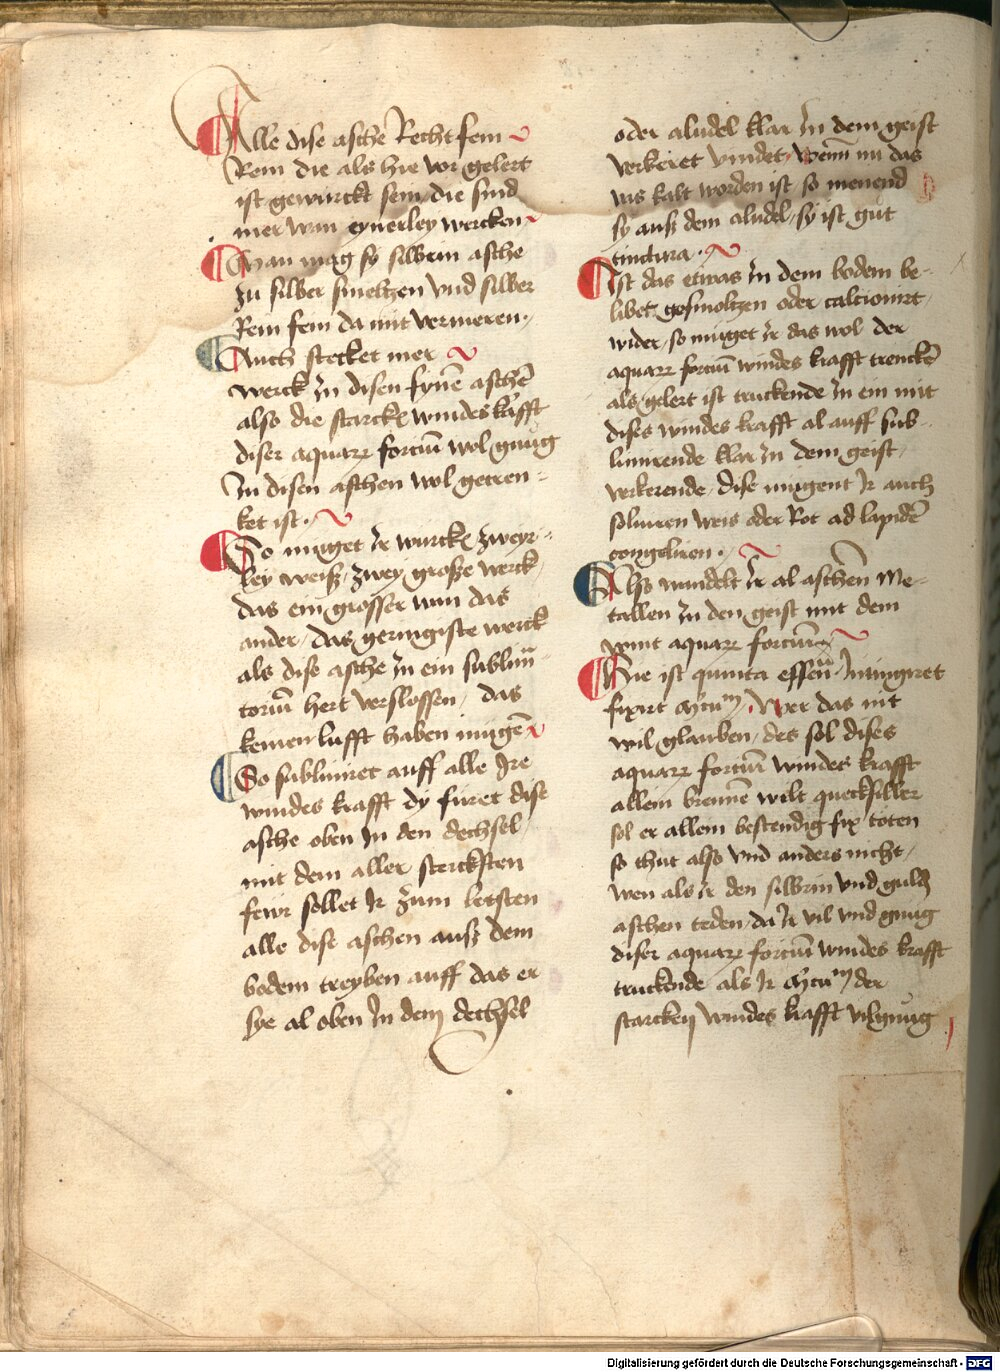 Alle dise asche Recht fein
Rein die als hie vor gelert
ist gewurckt sein, die sind
mer wan eynerley wercken
Man mag sy silbrin asche
zu silber smeltzen vnd silber
Rein fein da mit vermeren.
Auch stecket mer
werck Jn disen fynē aschē
also die starckē windes krafft
diser aquarꝝ fortiū wol gnůg
Jn disen aschen wol getren-
ket ist.
So můget Ir wurckē zweyr-
ley weiß, zwey große werck,
das ein grosser wan das
ander, das geringiste werck
als dise asche Jn ein sublim̄
toriū hert verslossen, das
keinen lufft haben mügē
So sublimiret auff alle Ire
windes krafft dy füret dise
asche oben Jn den dechsel,
mit dem aller stercksten
feur sollet Ir zum letsten
alle dise aschen auß dem
bodem treyben auff das er
sye al oben Jn dem dechsel
oder aludel klar Jn dem geist
verkeret vindet, wenn nu das
vas kalt worden ist so nemend
sy auß dem aludel, sy ist gůt
tinctura.
Ist das etwas Jn dem bodem be-
libet gesmoltzen oder calcionirt,
wider, so müget Ir das wol der
aquarꝝ fortiū windes krafft trenckē
als gelert ist truckende Jn ein mit
dises windes krafft al auff sub-
limirende klar Jn dem geist,
verkerende, dise mügent Ir auch
soluiren weis oder Rot ad lapidē
congeliren.
Also wandelt Ir al aschen Me-
tallen Jn den geist mit dem
wint aquarꝝ fortiū
Hie ist quinta essen
fixirt Wer das nit
wil glauben, des sol dises
aquarꝝ fortiū windes krafft
allein brennē wilt quecksilber
sol er allein bestendig fix töten
so thut also vnd anders nicht,
wen als Ir den silbrin vnd guldē
aschen teden, da Ir vil vnd gnug
diser aquarꝝ fortiū windes krafft
truckende als Ir der
starcken windes krafft vil gnůg
Digitalisierung gefördert durch die Deutsche Forschungsgemeinschaft - DFG